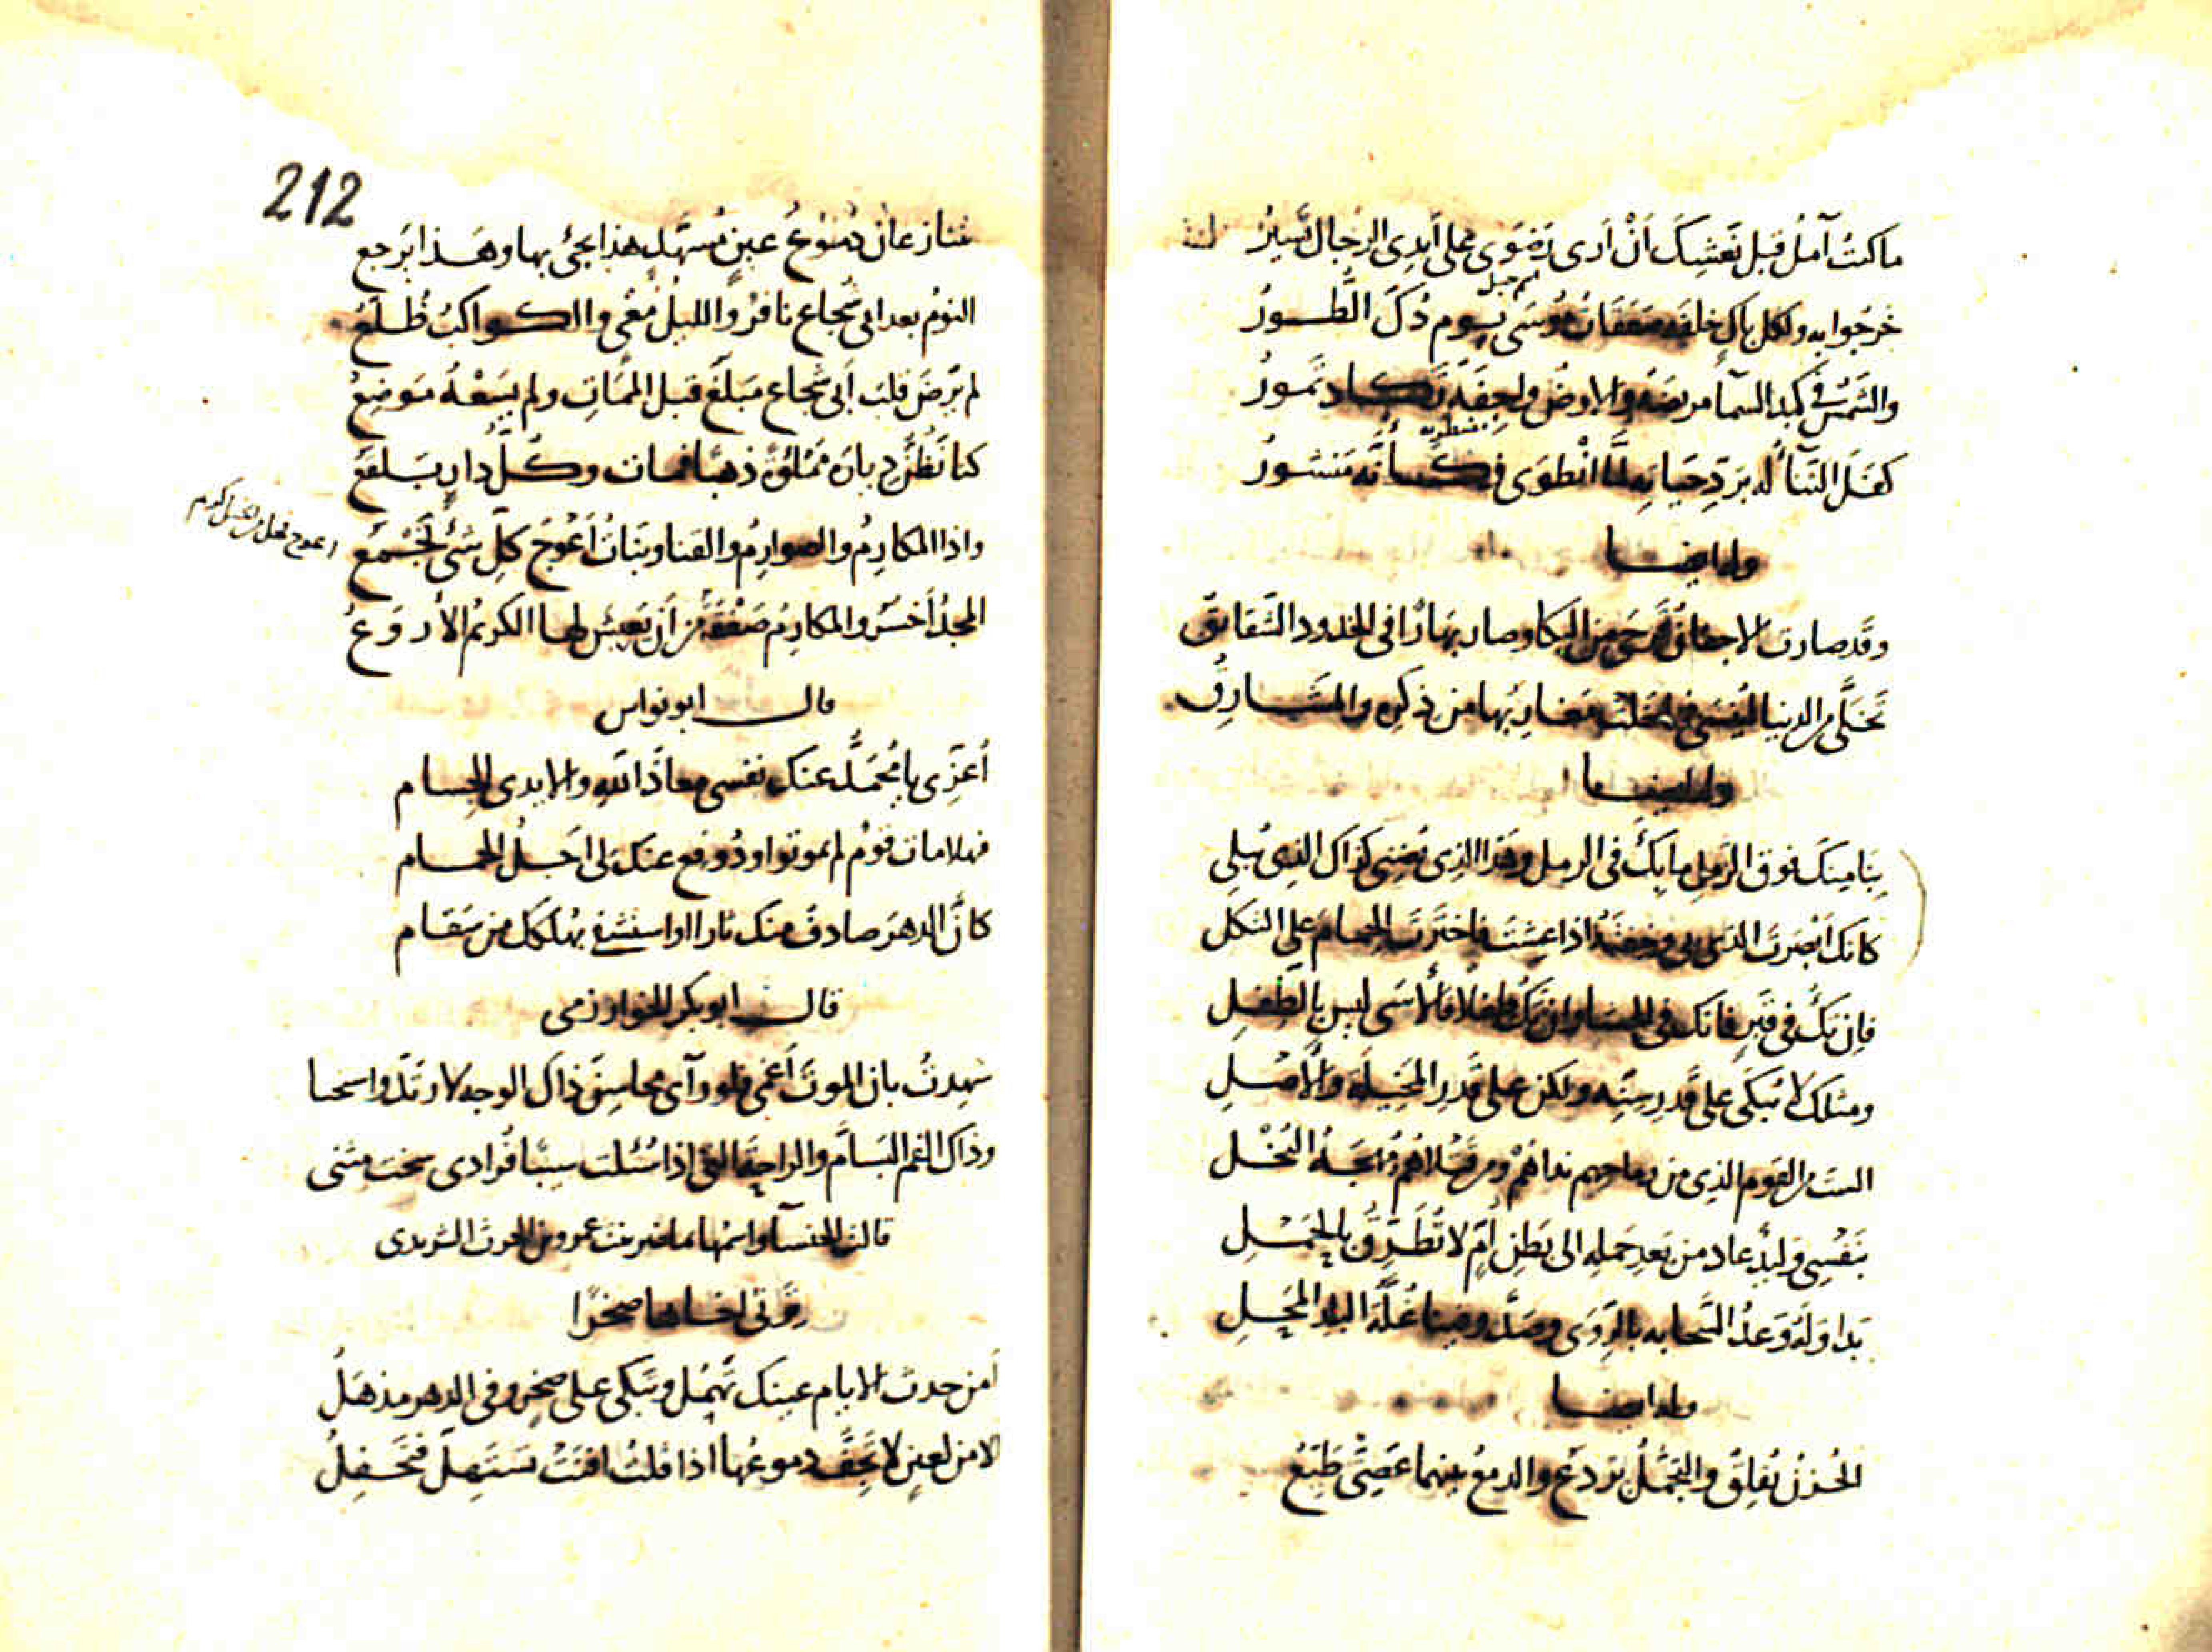 ما كنتُ آملُ قبل نَعشِكَ اَنْ اَرى رَضوَى على اَيدِى الرجال تَسيرُ
اسم جبل
خرجُوا به ولكل باكٍ خلفه صَعَقَاتُ مُوسَى يوم دُكَّ الطُّورُ
والشمسُ فى كبد السمآ مريضة والارضُ واجفةٌ تكاد تمورُ
كفَلَ الثنآ له بردِّ حيَاتِهِ لمَّا انْطوَى فكَأنَّه منشورُ
وله ايضا
وقد صارت الاجفان قرحى من البكا وصار بهارًا فى الخدود الشقائق
تخلَّى من الدنيا ليُنسَى فما خلت مغاربُها من ذكرِه والمشارقُ
وله ايضا
بِنَا مِنكَ فوق الرَّمل مابِكَ فى الرمل وهذا الذى يُضنى كذاك الذى يُبلِى
كانك اَبْصَرتَ الذى بى وخِفتَهُ اذا عِشتَ فاخترتَ الحِمام على الثكلِ
فاِن تكُ فى قبرٍ فانك فى الحشا وان تكُ طفلا فالاسَى ليس بالطفلِ
ومثلك لا يُبكَى على قدرِ سِنِّه ولكن على قَدرِ المَخِيلَةِ والاَصْلِ
الستَ من القوم الذى من رماحهم نداهُمْ ومن قتلاهُم مُهجَةُ البُخْلِ
بنَفْسِى وَلِيدٌ عاد من بَعدِ حَملِه الى بَطنِ اُمٍّ لا تُطَرِّقُ بالحَمْلِ
بَدا وَلهُ وَعدُ السَّحابه بالرِّوَى وصدَّ وفينا غُلَّةُ البلد المَحلِ
وله ايضا
الحُزنُ يُقلِقُ والتجمُّلُ يَردَعُ والدمعُ بينهما عَصِىٌّ طَيِّعُ
212
يتنازعان دُمُوعَ عينِ مُسَهَّدٍ هذا يجئُ بها وهَذا يَرجعُ
النومُ بعد ابى شُجاع نافرٌ والليلُ مُعْىٍ والكواكبُ ظُلَّعُ
لم يُرضِ قلبَ اَبى شجاع مَبلَغٌ قبل المَمَاتِ ولم يَسَعْهُ مَوضِعُ
كنا نَظُنُّ دياره مَمْلُوَّةً ذهبًا فمات وكُلُّ دارٍ بَلقَعُ
واذا المكارِمُ والصوارِمُ والقنا وبَنَاتُ اَعْوَجَ كلُّ شئٍ يَجْمَعُ
اعوج فحل من الخيل كريم
المجدُ اَخسَرُ والمكارِمُ صَفْقَةً من اَن يَعِيشَ لها الكريمُ الاَروَعُ
قال ابو نواس
اُعَزِّى يا مُحَمَّدُ عنك نفسى معاذَ اللهِ والايدى الجِسامِ
فهلا مات قومٌ لم يموتوا ودُوفِعَ عنك لى اَجَلُ الحمام
كاَنَّ الدهرَ صادفَ منك ثارا او استشفى بهلكك من سَقام
قال ابو بكر الخوارزمى
شهِدتُ بان الموتَ اَعْمَى فلو رآى محاسِنَ ذاك الوجه لارتدَّ واستحيا
وذاك الفم البسَّام والراحة التى اذا سُئلت سيبًا فُرادى سخت مثنى
قالت الخنسآ واسمها تماضر بنت عمرو بن الحرث الشريدى
تَرثى اخاها صخرًا
اَمن حدث الايام عينك تَهمُل وتَبكى على صخرٍ وفى الدهر مذهَلُ
الا من لعينٍ لا تَجِفُّ دموعُها اذا قلتُ افنَتْ تستهِلُّ فتَحفِلُ